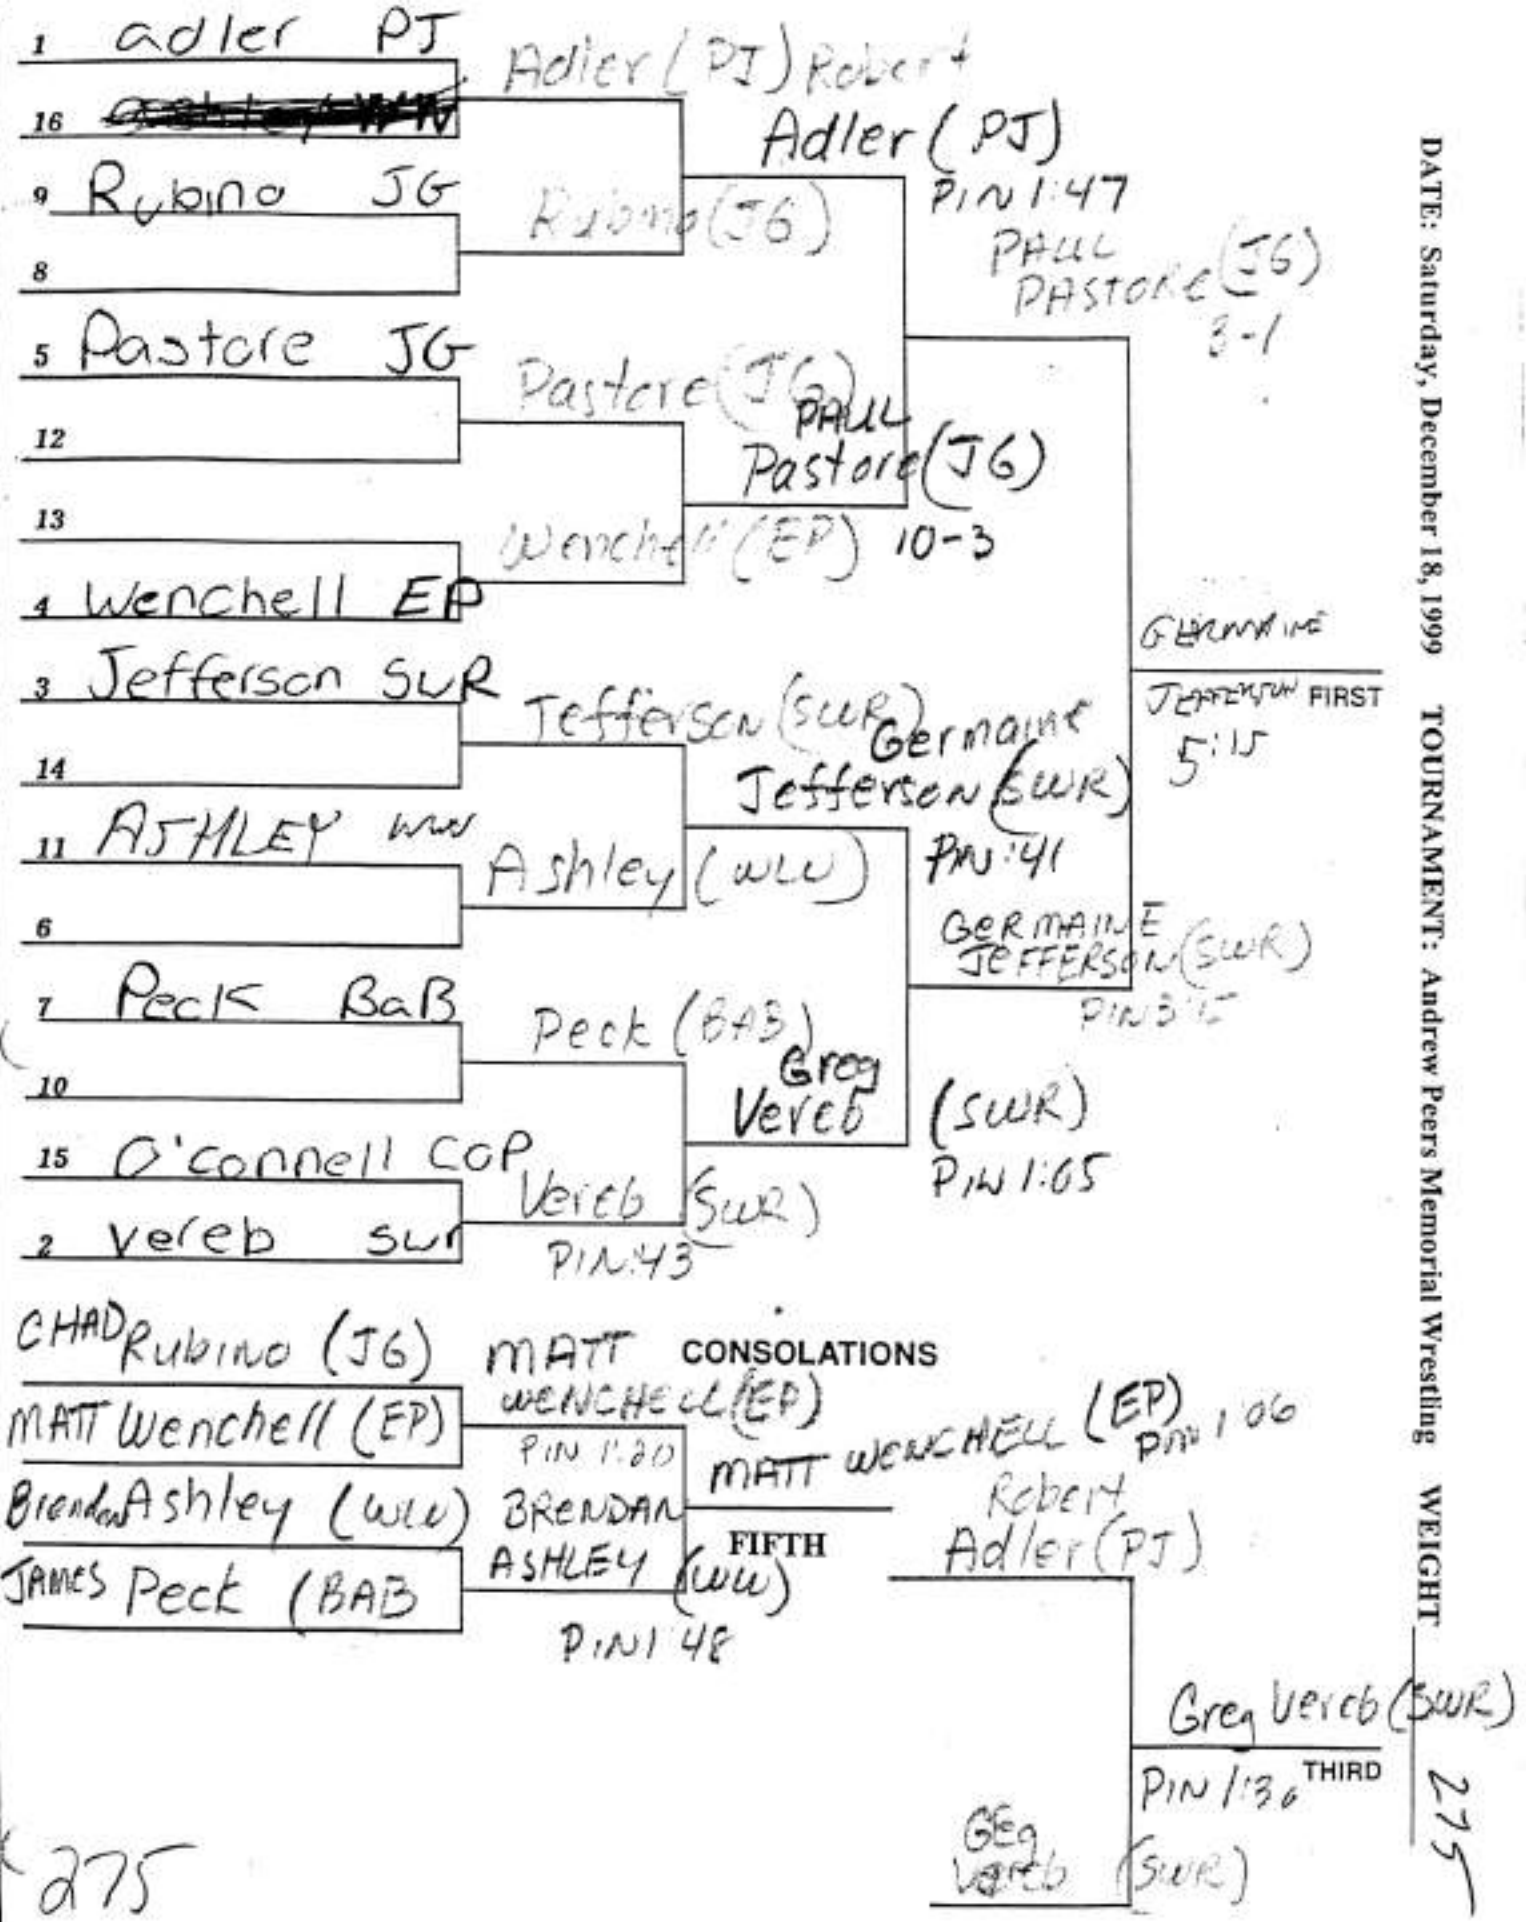 1 adler PJ
16
9 Rubino JG
8
5 Pastore JG
12
13
4 Wenchell EP
3 Jefferson SWR
14
11 ASHLEY WW
6
7 Peck BaB
10
15 O'connell COP
2 vereb swr
Adler (PJ) Robert
Rubino (JG)
Pastore (JG)
Wenchell (EP)
Jefferson (SWR)
Ashley (WW)
Peck (BAB)
Vereb (SWR)
PIN :43
Adler (PJ)
PIN 1:47
PAUL
Pastore (JG)
10-3
Germaine
Jefferson (SWR)
PIN :41
Greg
Vereb (SWR)
PIN 1:05
PAUL
PASTORE (JG)
3-1
GERMAINE
JEFFERSON (SWR)
PIN 3:15
GERMAINE
JEFFERSON FIRST
5:15
CONSOLATIONS
CHAD Rubino (JG)
MATT Wenchell (EP)
Brendan Ashley (WW)
JAMES Peck (BAB
MATT
WENCHELL (EP)
PIN 1:20
BRENDAN
ASHLEY (WW)
PIN 1:48
MATT WENCHELL (EP)
PIN 1:06
FIFTH
Robert
Adler (PJ)
GEg
Vereb (SWR)
Greg Vereb (SWR)
PIN 1:30 THIRD
275
DATE: Saturday, December 18, 1999 TOURNAMENT: Andrew Peers Memorial Wrestling WEIGHT 275